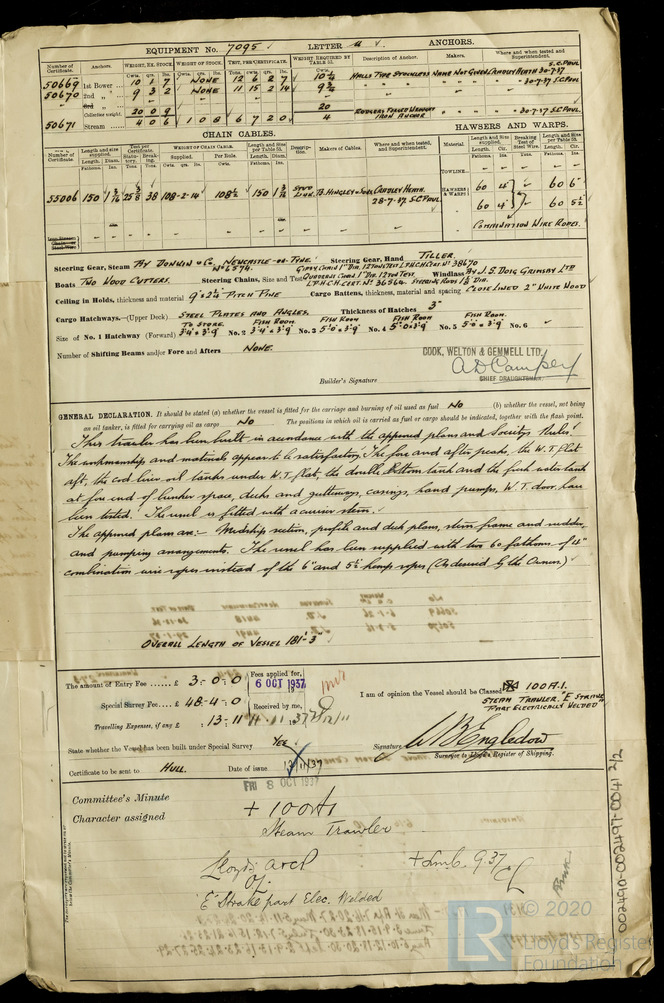 EQUIPMENT No. 7095 LETTER u ANCHORS.
Number of Certificate. Anchors. WEIGHT, EX. STOCK. WEIGHT OF STOCK. TEST, PER CERTIFICATE. WEIGHT REQUIRED BY TABLE 31. Description of Anchor. Makers. Where and when tested and Superintendent.
Cwts. qrs. lbs. Cwts. qrs. lbs. Tons. cwts. qrs. lbs. Cwts.
50669 1st Bower 10 1 7 NONE 12 6 2 7 10¼ HALLS TYPE STOCKLESS NONE NOT GIVEN CRADLEY HEATH 30-7-37 S.C. PAUL
50670 2nd " 9 3 2 NONE 11 15 2 14 9¾ " " " " " 30-7-37 S.C. PAUL
3rd "
Collective weight. 20 0 9 20
50671 Stream 4 0 6 1 0 8 6 7 2 0 4 IRON ANCHOR " " 30-7-37 S.C. PAUL
CHAIN CABLES. HAWSERS AND WARPS.
Number of Certificate. Length and size supplied. Test per Certificate WEIGHT OF CHAIN CABLE. Length and size per Table 31. Description. Makers of Cables. Where and when tested, and Superintendent. Material Length and Size supplied. Breaking Test of Steel Wire. Length and Size per Table 31.
Fathoms. Diam. Statutory. Breaking. Supplied. Per Rule. Length. Diam. Fathoms. Ins. Tons. Fathoms. Cir.
TOWLINE
55006 150 1 3/16 25 3/8 38 108-2-14 108½ 150 1 3/16 STUD LINK N. HINGLEY & SONS CRADLEY HEATH. 28-7-37 S.C. PAUL HAWSERS & WARPS 60 4" 60 6"
60 4" 60 5½"
COMBINATION WIRE ROPES.
Steering Gear, Steam BY DONKIN & Co. NEWCASTLE-ON-TYNE. No 6574. Steering Gear, Hand TILLER
Boats TWO WOOD CUTTERS. Steering Chains, Size and Test Windlass BY J.S. DOIG GRIMSBY LTD
L.P.H.C.H. CERT. No 36564. STEERING RODS
Ceiling in Holds, thickness and material 9" x 2¼" PITCH PINE Cargo Battens, thickness, material and spacing CLOSE LINED 2" WHITE WOOD
Cargo Hatchways.—(Upper Deck) STEEL PLATES AND ANGLES. Thickness of Hatches 3"
TO STORE. FISH ROOM. FISH ROOM FISH ROOM FISH ROOM.
Size of No. 1 Hatchway (Forward) 3'4" x 3'9" No. 2 3'4" x 3'9" No. 3 5'0" x 3'9" No. 4 5'0" x 3'9" No. 5 5'0" x 3'9" No. 6
Number of Shifting Beams and/or Fore and Afters NONE.
COOK, WELTON & GEMMELL LTD.
CHIEF DRAUGHTSMAN
Builder's Signature
GENERAL DECLARATION. It should be stated (a) whether the vessel is fitted for the carriage and burning of oil used as fuel No (b) whether the vessel, not being
an oil tanker, is fitted for carrying oil as cargo No The positions in which oil is carried as fuel or cargo should be indicated, together with the flash point.
This trawler has been built in accordance with the approved plans and Society's Rules.
The workmanship and materials appear to be satisfactory. The fore and after peaks, the W.T. flat
aft, the cod liver oil tanks under W.T. flat, the double bottom tank and the fresh water tank
at fore end of bunker space, decks and gutterways, casings, hand pumps, W.T. door, have
been tested. The vessel is fitted with a cruiser stern.
The approved plans are:- Midship section, profile and deck plans, stern frame and rudder,
and pumping arrangements. The vessel has been supplied with two 60 fathoms of 4"
combination wire ropes instead of the 6" and 5½" hemp ropes (As desired by the Owners)
OVERALL LENGTH OF VESSEL 181'-3"
The amount of Entry Fee ...... £ 3-0-0 Fees applied for, 6 OCT 1937
Special Survey Fee.... £ 48-4-0 Received by me,
Travelling Expenses, if any £ :13-11
I am of opinion the Vessel should be Classed 100A.1.
STEAM TRAWLER, "E STRAKE
PART ELECTRICALLY WELDED"
State whether the Vessel has been built under Special Survey Yes
Signature W B Engledow
Surveyor to Lloyd's Register of Shipping.
Certificate to be sent to HULL. Date of issue 13/11/37
FRI 8 OCT 1937
Committee's Minute
Character assigned + 100A1
Steam Trawler
Lloyd's A&CP + LMC 9.37
"E" Strake part Elec. Welded
002490-002497-0041 2/2
LR © 2020
Lloyd's Register
Foundation